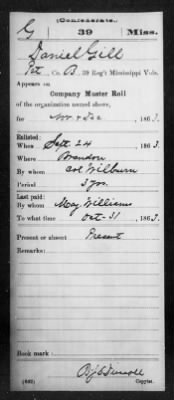 (Confederate.)
G 39 Miss.
Daniel Gill
Pvt, Co. B, 39 Reg't Mississippi Vols.
Appears on
Company Muster Roll
of the organization named above,
for Nov & Dec, 1863.
Enlisted:
When Sept 24, 1863
Where Brandon
By whom Col Wilburn
Period 3 yrs.
Last paid:
By whom Maj Williams
To what time Oct 31, 1863.
Present or absent Present
Remarks:
Book mark:
(642) Copyist.